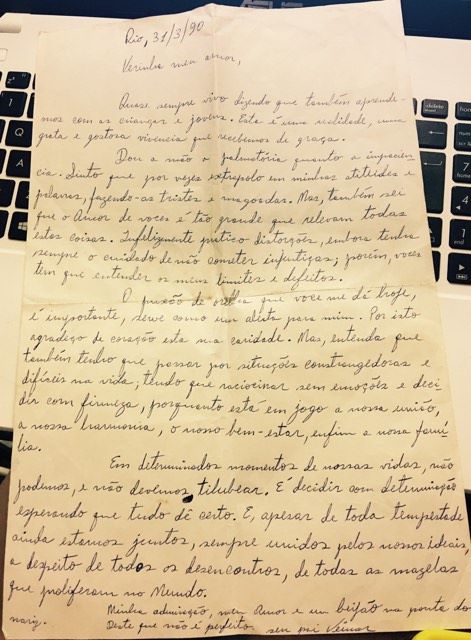 Rio, 31/3/90
Verinha meu amor,
Quase sempre vivo dizendo que também aprende-
mos com as crianças e jovens. Esta é uma realidade, uma
grata e gostosa vivencia que recebemos de graça.
Dou a mão a palmatória quanto a impaciên-
cia. Sinto que por vezes extrapolo em minhas atitudes e
palavras, fazendo-as tristes e magoadas. Mas, também sei
que o Amor de voces é tão grande que relevam todas
estas coisas. Infelizmente pratico distorções, embora tenha
sempre o cuidado de não cometer injustiças; porém, voces
tem que entender os meus limites e defeitos.
O puxão de orelha que voce me dá hoje,
é importante, serve como um alerta para mim. Por isto
agradeço de coração esta sua caridade. Mas, entenda que
também tenho que passar por situações constrangedoras e
difíceis na vida; tendo que raciocinar sem emoções e deci-
dir com firmeza, porquanto está em jogo a nossa união,
a nossa harmonia, o nosso bem-estar, enfim a nossa famí-
lia.
Em determinados momentos de nossas vidas, não
podemos, e não devemos, titubear. É decidir com determinação
esperando que tudo dê certo. E, apesar de toda tempestade
ainda estamos juntos, sempre unidos pelos nossos ideais,
a despeito de todos os desencontros, de todas as mazelas
que proliferam no Mundo.
Minha admiração, meu Amor e um beijão na ponta do
nariz. Deste que não é perfeito seu pai